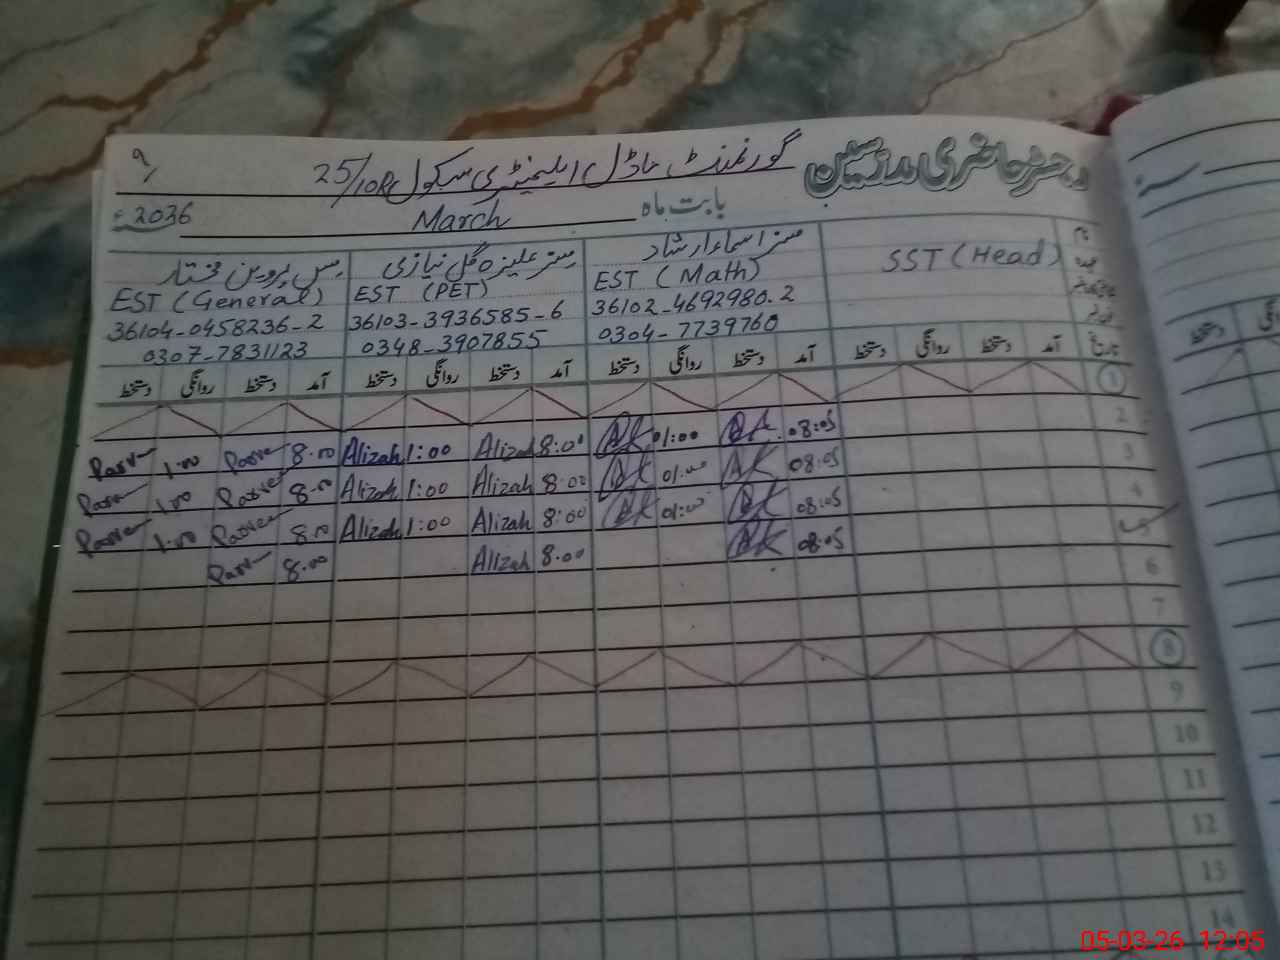 رجسٹر حاضری مدرسین
گورنمنٹ ماڈل ایلیمنٹری سکول 25/10R
9/
بابت ماہ March 2036ء
نام
عہدہ
شناختی کارڈ نمبر
فون نمبر
SST (Head)
مسز اسماء ارشاد
EST (Math)
36102-4692980-2
0304-7739760
مسز علیزہ گل نیازی
EST (PET)
36103-3936585-6
0348-3907855
مس پروین مختار
EST (General)
36104-0458236-2
0307-7831123
تاریخ آمد دستخط روانگی دستخط آمد دستخط روانگی دستخط آمد دستخط روانگی دستخط آمد دستخط روانگی دستخط
1
2 08:05 AK 01:00 AK 8:00 Alizah 1:00 Alizah 8:00 Parveen 1:00 Parveen
3 08:05 AK 01:00 AK 8:00 Alizah 1:00 Alizah 8:00 Parveen 1:00 Parveen
4 08:05 AK 01:00 AK 8:00 Alizah 1:00 Alizah 8:00 Parveen 1:00 Parveen
5 08:05 AK 8:00 Alizah 8:00 Parveen
6
7
8
9
10
11
12
13
14
دستخط
05-03-26 12:05